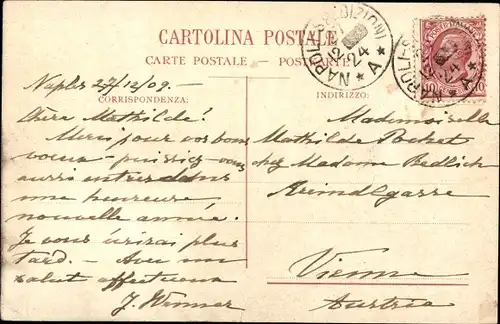 CARTOLINA POSTALE
CARTE POSTALE POSTKARTE
NAPOLI SPEDIZIONI
12
24
★ A ★
Naples 27/12/09.-
CORRISPONDENZA:
INDIRIZZO:
Chère Mathilde!
Merci pour vos bons
voeux - puissiez-vous
aussi entrer dans
une heureuse
nouvelle année.
Je vous écrirai plus
tard. - Avec un
salut affectueux
J. Wenner
Mademoiselle
Mathilde
chez Madame Redlich
Vienne
Austria